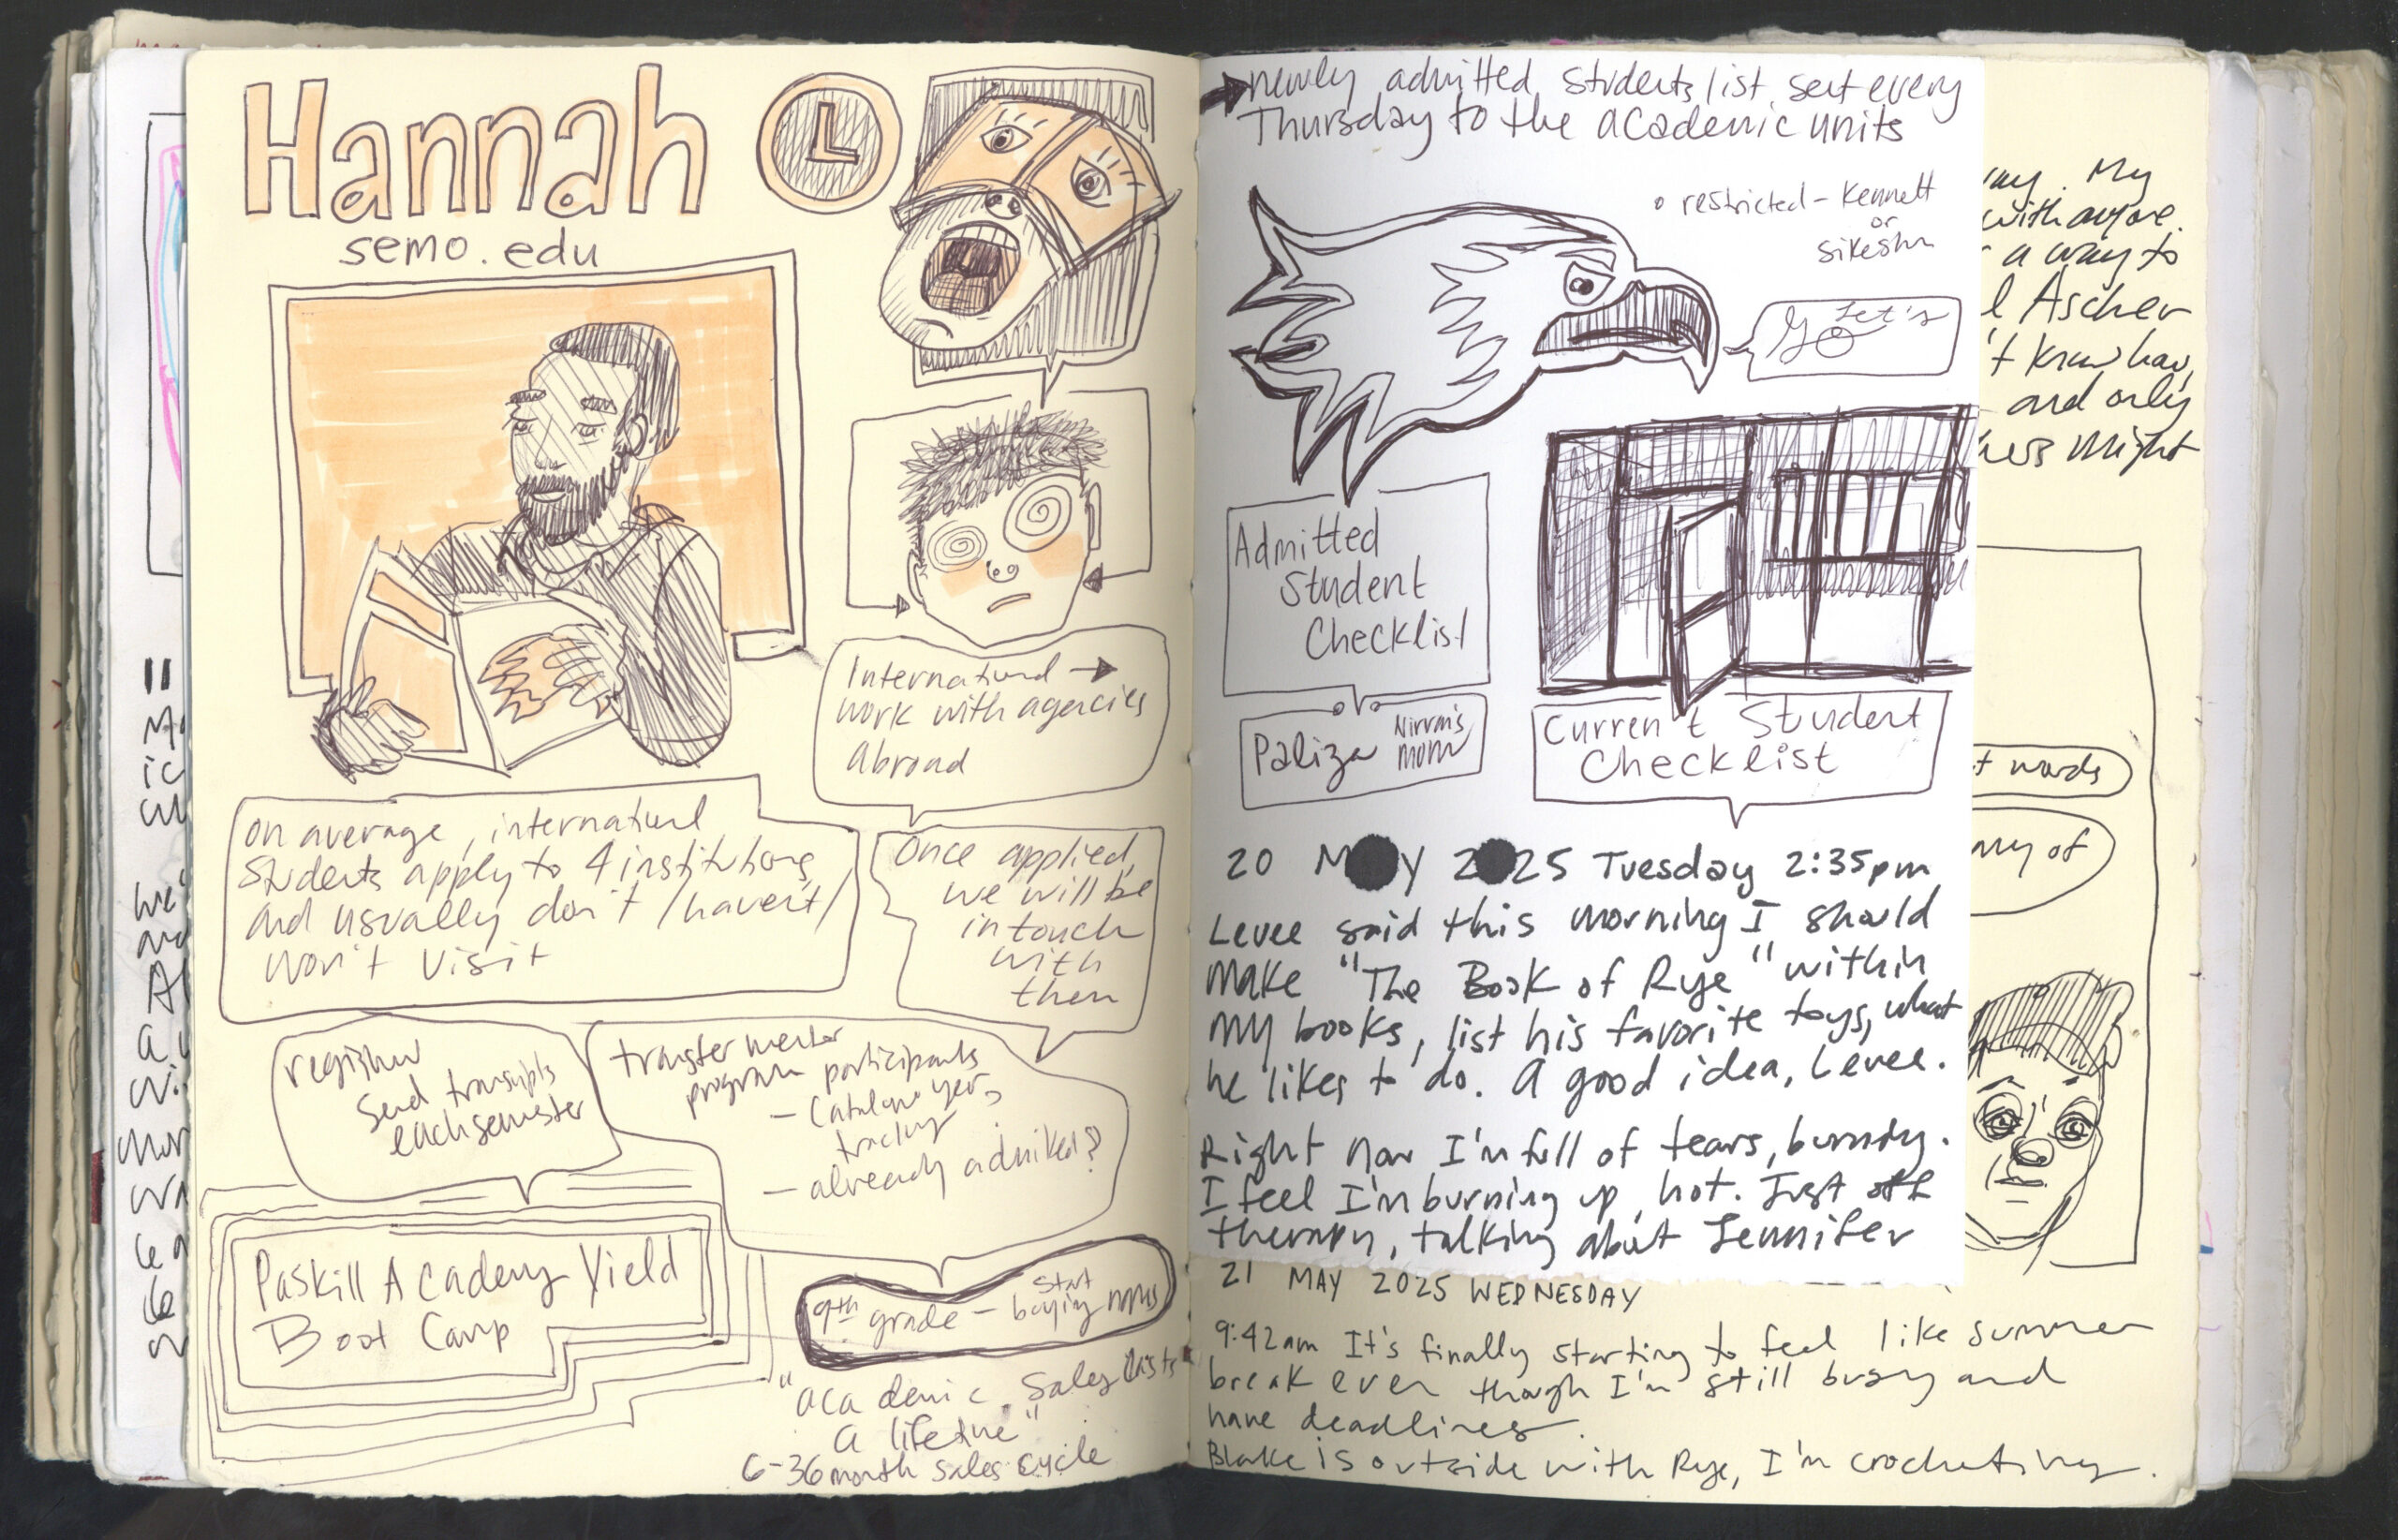 Hannah
semo.edu
International →
work with agencies
Abroad
on average, international
Students apply to 4 institutions
and usually don't / haven't /
won't visit
Once applied,
we will be
in touch
with
them
register
Send transcripts
each semester
transfer mentor
program participants
- Catalog year
tracking
- already admitted?
Paskill Academy Yield
Boot Camp
9th grade - start buying names
"academic sales lasts
a lifetime"
6-36 month sales cycle
newly admitted students list sent every
Thursday to the academic units
• restricted - Kennett
or
Sikeston
Let's
Go
Admitted
Student
Checklist
Paliza Nirvan's
mom
Current Student
Checklist
20 May 2025 Tuesday 2:35pm
Levee said this morning I should
make "The Book of Rye" within
my books, list his favorite toys, what
he likes to do. A good idea, Levee.
Right now I'm full of tears,
I feel I'm burning up, hot. Just off
therapy, talking about Jennifer
21 MAY 2025 WEDNESDAY
9:42am It's finally starting to feel like summer
break even though I'm still busy and
have deadlines.
Blake is outside with Rye, I'm crocheting.
way. My
with anyone.
a way to
Ascher
't know how,
and only
might
words
of